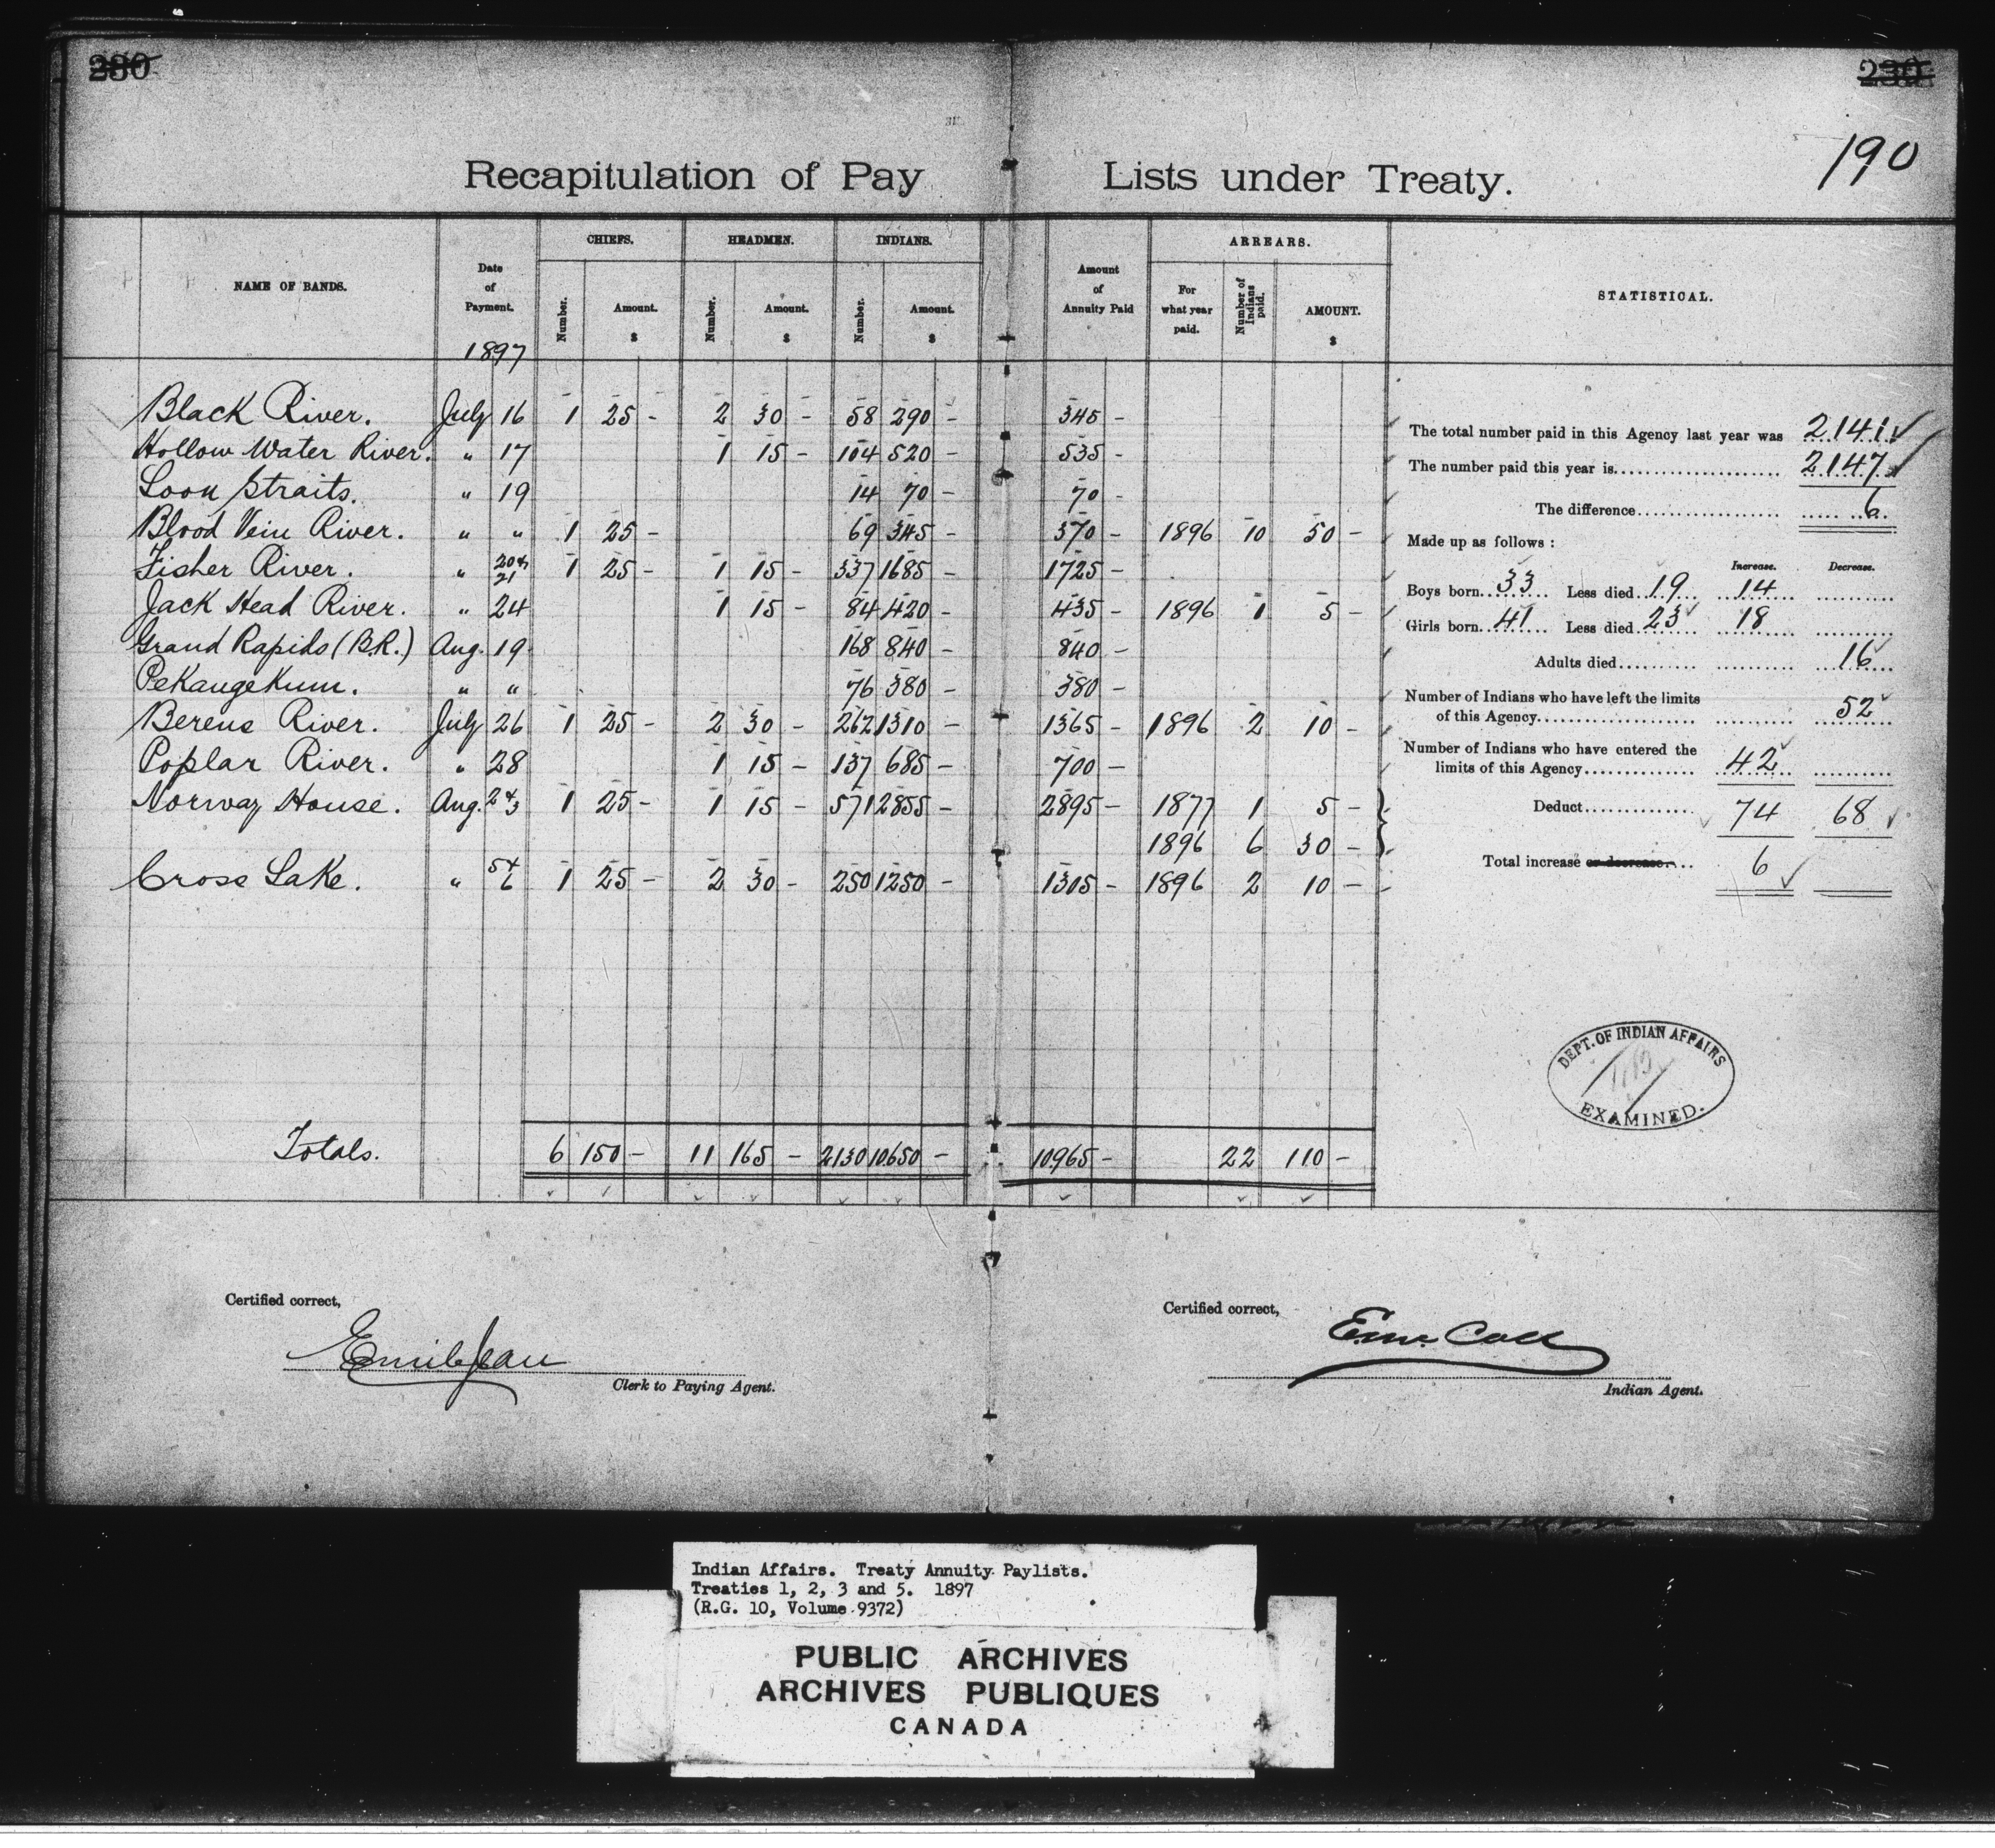 230 230
190
Recapitulation of Pay Lists under Treaty.
NAME OF BANDS. Date of Payment. CHIEFS. HEADMEN. INDIANS. Amount of Annuity Paid ARREARS. STATISTICAL.
Number. Amount. $ Number. Amount. $ Number. Amount. $ For what year paid. Number of Indians paid. AMOUNT. $
1897
Black River. July 16 1 25 - 2 30 - 58 290 - 345 -
Hollow Water River. " 17 1 15 - 104 520 - 535 -
Loon Straits. " 19 14 70 - 70 -
Blood Vein River. " " 1 25 - 69 345 - 370 - 1896 10 50 -
Fisher River. " 20 & 21 1 25 - 1 15 - 337 1685 - 1725 -
Jack Head River. " 24 1 15 - 84 420 - 435 - 1896 1 5 -
Grand Rapids (B.R.) Aug. 19 168 840 - 840 -
Pekangekum. " " 76 380 - 380 -
Berens River. July 26 1 25 - 2 30 - 262 1310 - 1365 - 1896 2 10 -
Poplar River. " 28 1 15 - 137 685 - 700 -
Norway House. Aug. 2 & 3 1 25 - 1 15 - 571 2855 - 2895 - 1877 1 5 -
1896 6 30 -
Cross Lake. " 5 & 6 1 25 - 2 30 - 250 1250 - 1305 - 1896 2 10 -
Totals. 6 150 - 11 165 - 2130 10650 - 10965 - 22 110 -
The total number paid in this Agency last year was 2141
The number paid this year is 2147
The difference 6
Made up as follows :
Increase. Decrease.
Boys born 33 Less died 19 14
Girls born 41 Less died 23 18
Adults died 16
Number of Indians who have left the limits
of this Agency 52
Number of Indians who have entered the
limits of this Agency 42
Deduct 74 68
Total increase or decrease 6
DEPT. OF INDIAN AFFAIRS
EXAMINED.
Certified correct,
Emile Jean
Clerk to Paying Agent.
Certified correct,
Indian Agent.
Indian Affairs. Treaty Annuity Paylists.
Treaties 1, 2, 3 and 5. 1897
(R.G. 10, Volume 9372)
PUBLIC ARCHIVES
ARCHIVES PUBLIQUES
CANADA